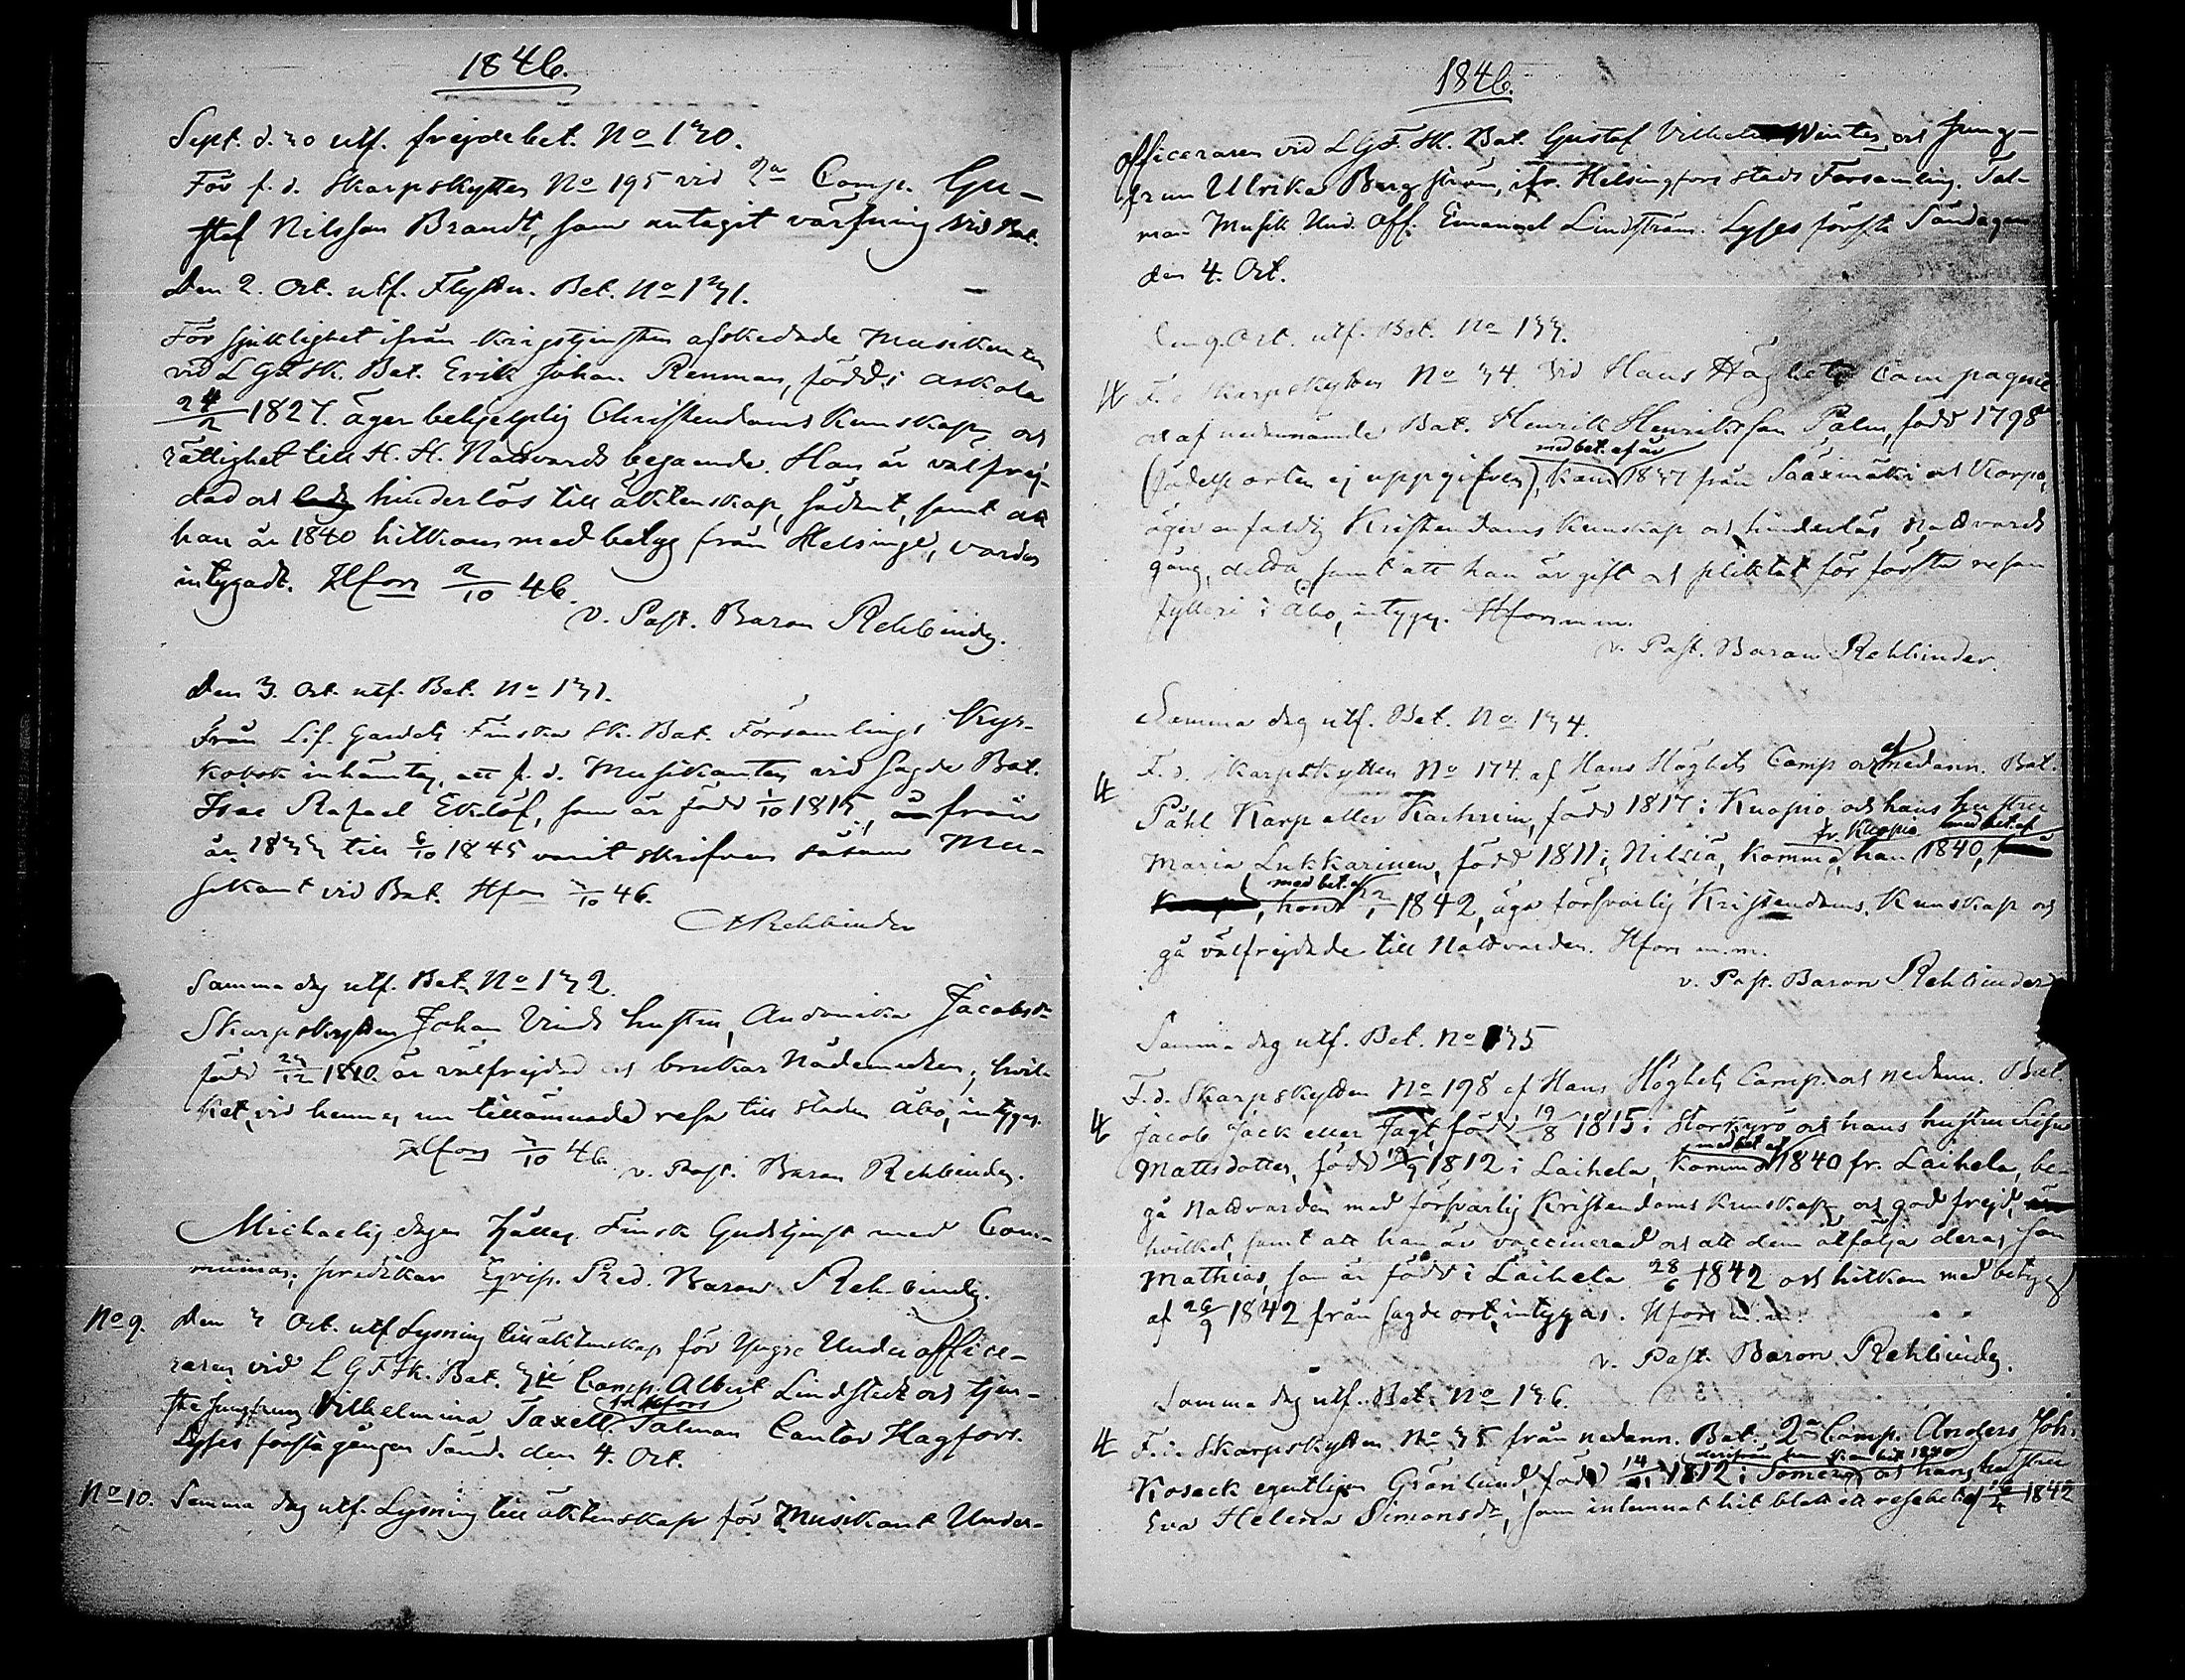 1846.
Sept. d. 30 utf. frejdebet. No 130.
För f. d. Skarpskytten No 195 vid 2a Comp. Gu-
staf Nilsson Brandt, som antagit värfning vid Bat.
Den 2. Oct. utf. Flyttn. Bet. No 131.
För sjuklighet ifrån krigstjensten afskedade Musikanten
vid L G F Sk. Bat. Erik Johan Renman, född i Askola
24/2 1827. äger behjelplig Christendoms kunskap, och
rättighet till H. H. Nattvards begående. Han är välfrej-
dad och hinderlös till äktenskap, sådant, samt att
han år 1840 hitkom med betyg från Helsinge, varder
intygadt. Hfors 2/10 46.
v. Past. Baron Rehbinder.
Den 3. Oct. utf. Bet. No 131.
Från Lif. Gardets Finska Sk. Bat. Församlings Kyr-
kobok inhämtas, att f. d. Musikanten vid sagde Bat.
Isac Rafael Ekelöf, som är född 1/10 1815, från
år 1833 till 6/10 1845 varit skrifven såsom Mu-
sikant vid Bat. Hfors 3/10 46.
Rehbinder
Samma dag utf. Bet. No 132.
Skarpskytten Johan Vinds hustru, Jacobsdr
född 23/12 1810. är välfrejdad och brukar Nådemedlen; hvil-
ket, vid hennes nu tillämnade resa till staden Åbo, intygas.
Hfors 3/10 46. v. Past. Baron Rehbinder.
Michaelis dagen hålles Finsk Gudstjenst med Com-
munion; predikar Eqvip. Pred. Baron Rehbinder.
No 9. Den 3 Oct. utf Lysning till äktenskap för Yngre Underoffice-
raren vid L G F Sk. Bat. 3je Comp. Albert Lindstedt och tjen-
ste jungfrun Vilhelmina Taxell fr Hfors. Talman Cantor Hagfors.
Lyses första gången Sönd. den 4. Oct.
No 10. Samma dag utf. Lysning till äktenskap för Musikant Under-
1846.
officeraren vid L G F. Sk. Bat. Gustaf Vilhelm Winter och Jung-
frun Ulrika Bergström, ifr. Helsingfors stads Församling. Tal-
man Musik Und. Off. Emanuel Lindström. Lyses första Söndagen
den 4. Oct.
Den 9. Oct. utf. Bet. No 133.
F. d. Skarpskytten No 34. vid Hans Höghets Compagnie
och af nedannämde Bat. Henrik Henriksson Palm, född 1798
(födelseorten ej uppgifven), kom med bet. af år 1837 från Sääxmäki och Korpo,
äger enfaldig Kristendoms kunskap och hinderlös Nattvards
gång, detta samt att han är gift och pliktat för första resan
fylleri i Åbo, intygas. Hfors m. m.
v. Past. Baron Rehbinder.
Samma dag utf. Bet. No 134.
F. d. Skarpskytten No 174. af Hans Höghets Comp och af nedann. Bat.
Påhl Karp eller Karhinen, född 1817 i Kuopio och hans hustru
Maria Lukkarinen, född 1811 i Nilsiä, komma, han fr. Kuopio med bet. af 1840,
hon med bet. af 1842, äga försvarlig Kristendoms Kunskap och
gå välfrejdade till Nattvarden. Hfors m. m.
v. Past. Baron Rehbinder
Samma dag utf. Bet. No 135
F. d. Skarpskytten No 198 af Hans Höghets Comp. och nedann. Bat.
Jacob Jack eller Jagt, född 19/8 1815 i Storkyro och hans hustru
Mattsdotter, född 1812 i Laihela, komma med bet. af 1840 fr. Laihela, be-
gå Nattvarden med försvarlig Kristendoms kunskap och god frejd,
hvilket, samt att han är vaccinerad och att dem åtfölja deras son
Mathias, som är född i Laihela 28/6 1842 och hitkom med betyg
af 26/9 1842 från sagde ort, intygas. Hfors m. m.
v. Past. Baron Rehbinder.
Samma dag utf. Bet. No 136.
F. d. Skarpskytten No 35 från nedann. Bat. 2a Comp. Anders Joh.
Kosack egentligen Grönlund, född 1812 i Somero, och hans hustru
Eva Helena Simonsdr, som inlemnat hit blott ett resebet af 1842